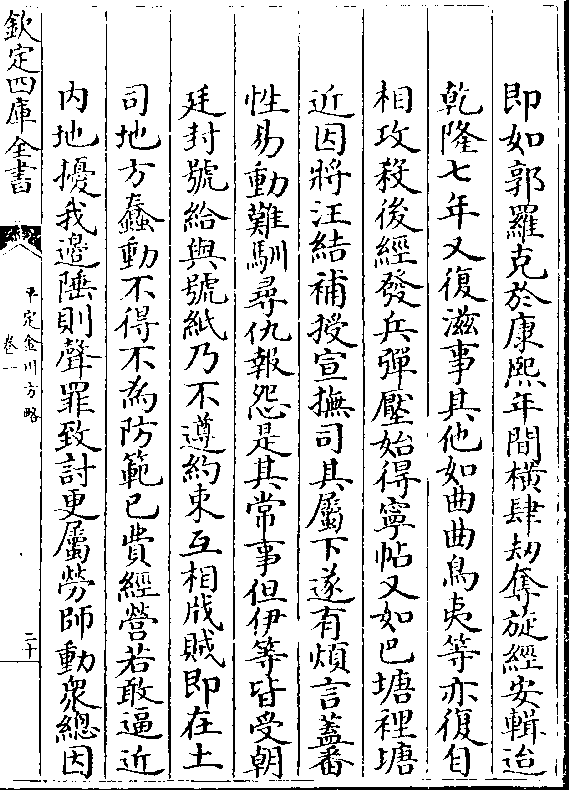 即如郭羅克於康熙年間横肆刼奪旋經安輯迨
乾隆七年又復滋事其他如曲曲鳥夷等亦復自
相攻殺後經發兵彈壓始得寧帖又如巴塘裡塘
近因將汪結補授宣撫司其屬下遂有煩言蓋番
性易動難馴尋仇報怨是其常事但伊等皆受朝
廷封號給與號紙乃不遵約束互相戕賊即在土
司地方蠢動不得不為防範已費經營若敢逼近
内地擾我邊陲則聲罪致討更屬勞師動衆總因
欽定四庫全書
平定金川方略
卷一
二十